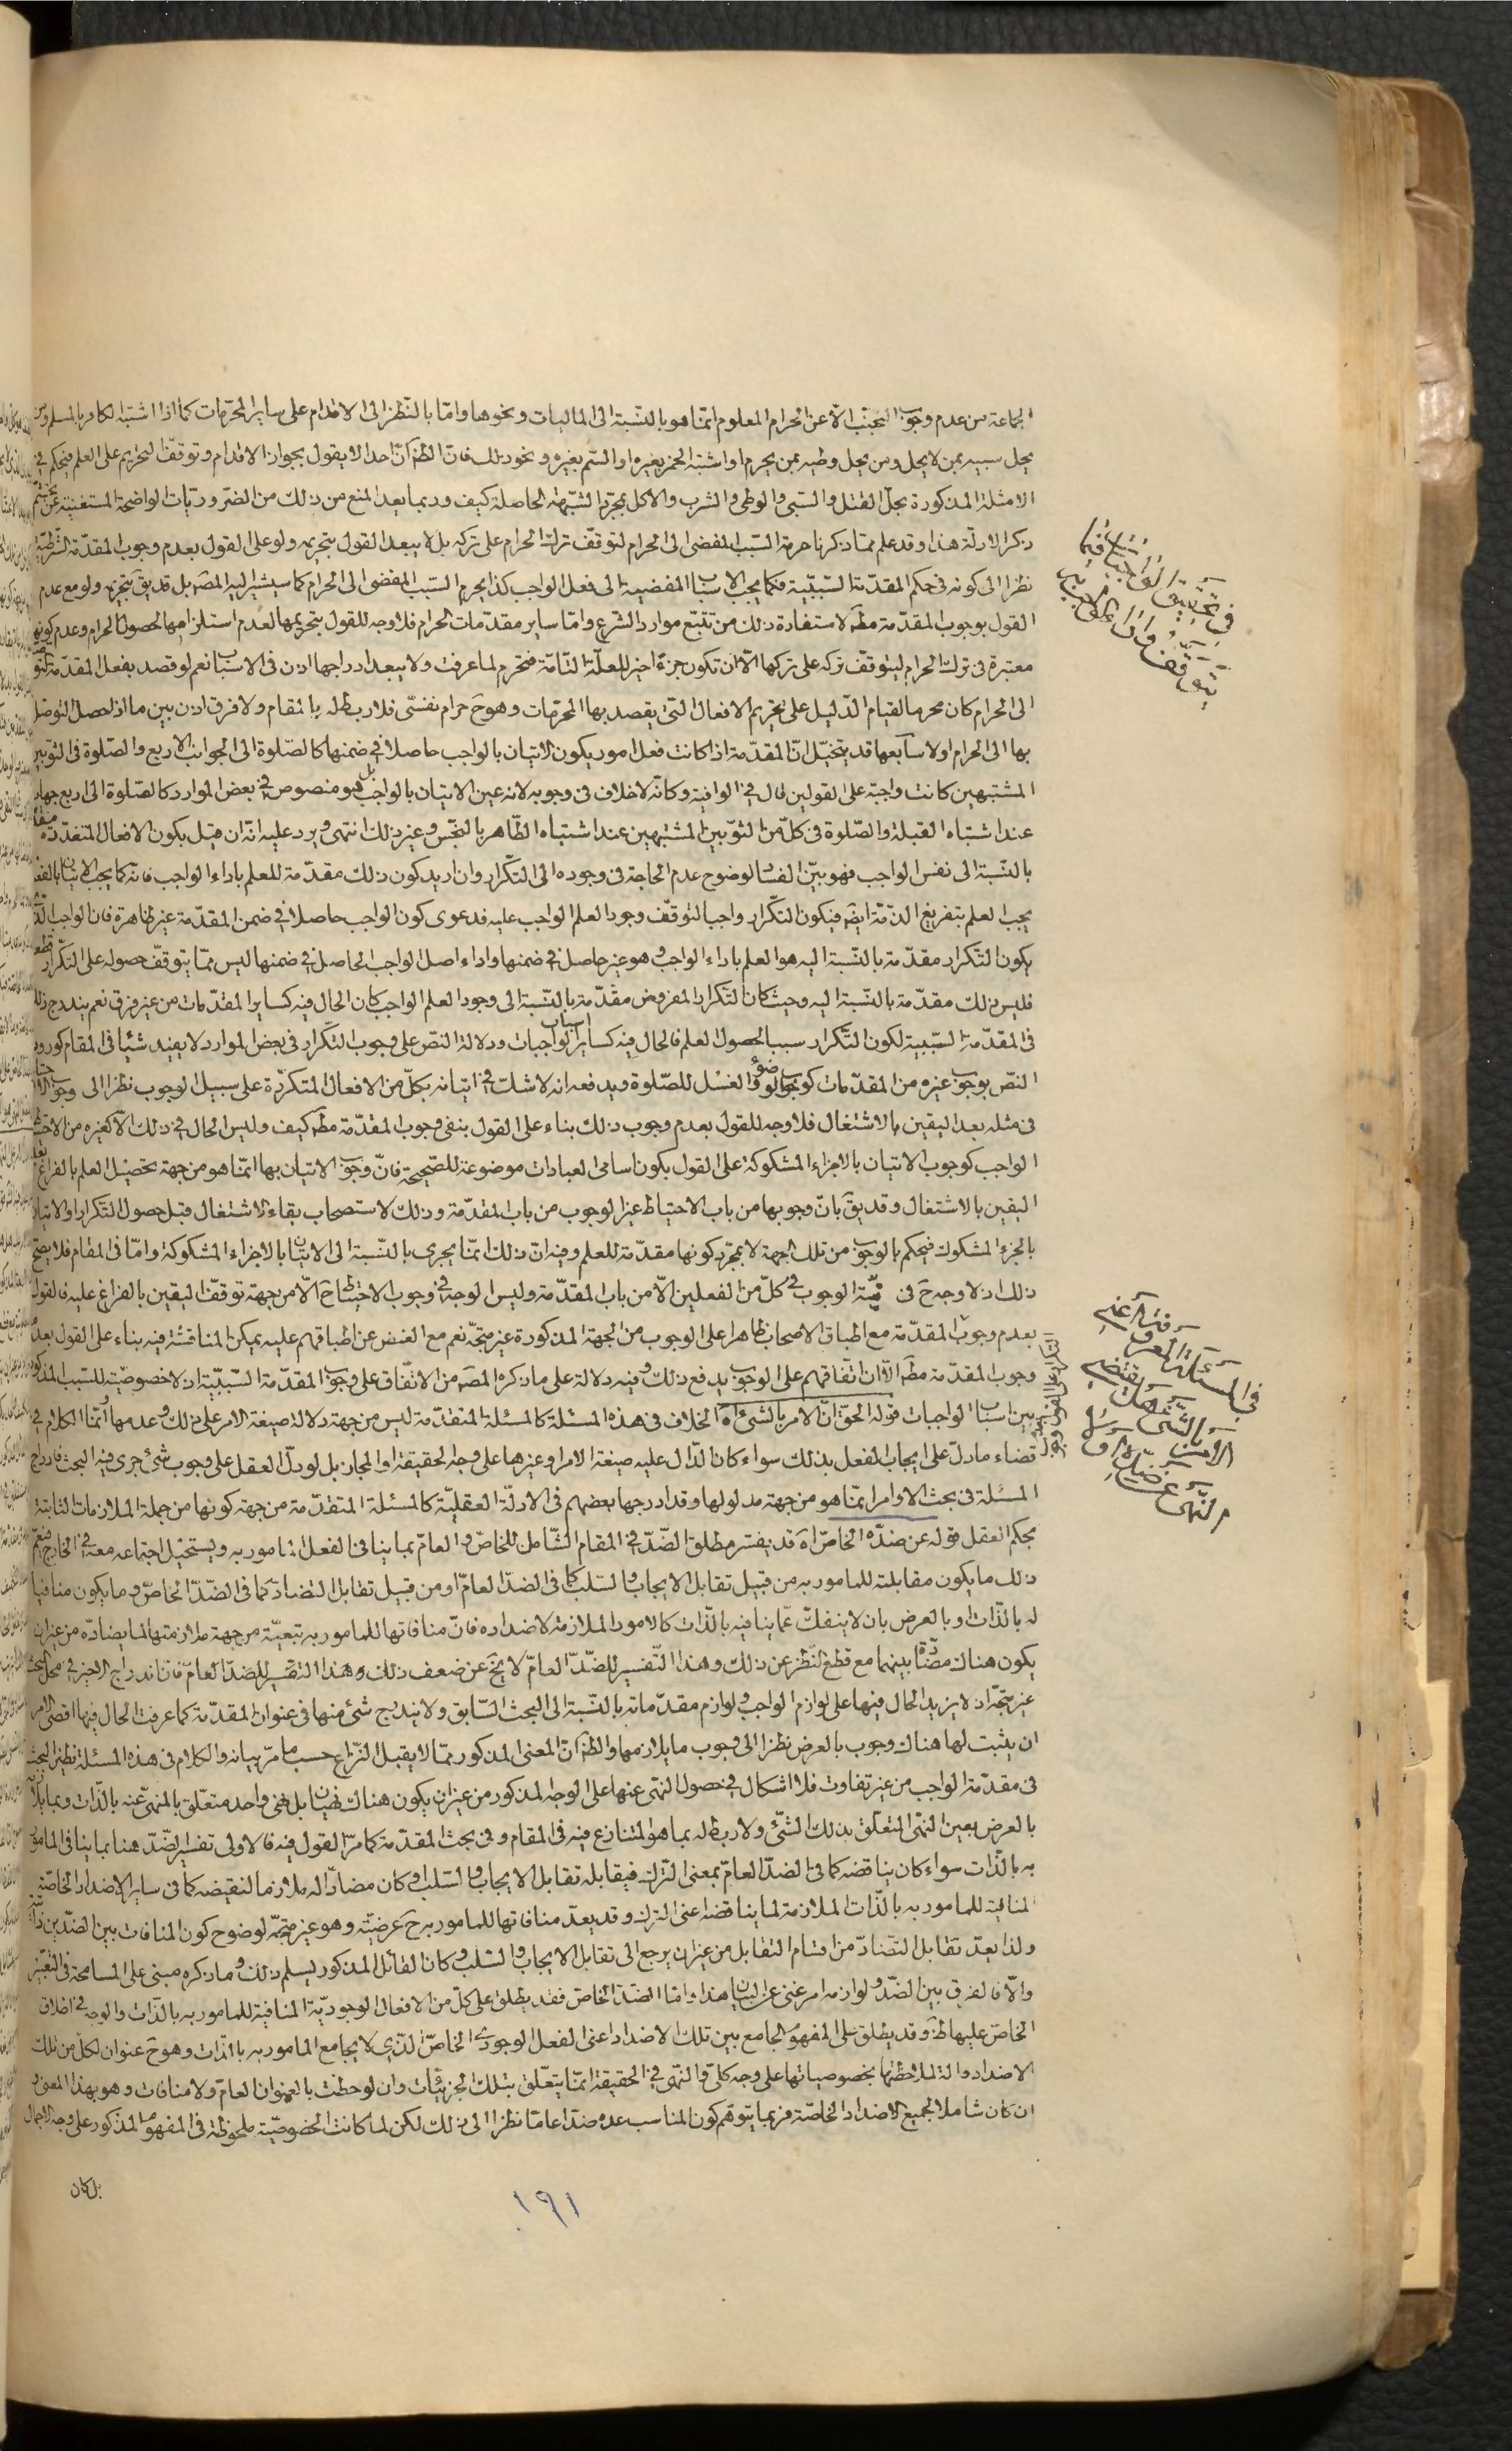 الجماعة من عدم وجوب التجنب الا عن الحرام المعلوم انما هو بالنسبة الى الماليات ونحوها واما بالنظر الى الاقدام على ساير المحرمات كما اذا اشتبه الكافر بالمسلم ومن
يحل سبيه بمن لا يحل ومن يحل وطيه بمن يحرم او اشتبه الخمر بغيره او السم بغيره ونحو ذلك فان الظ ان احدا لا يقول بجواز الاقدام وتوقف التحريم على العلم فيحكم في
الامثلة المذكورة بحل القتل والسبى والوطى والشرب والاكل بمجرد الشبهة الحاصلة كيف وربما يعد المنع من ذلك من الضروريات الواضحة المستغنية عن
ذكر الادلة هذا وقد علم مما ذكرنا حرمة السبب المفضى الى الحرام لتوقف ترك الحرام على تركه بل لا يبعد القول بتحريمه ولو على القول بعدم وجوب المقدمة الشرطية
نظرا الى كونه في حكم المقدمة السببية فكما يجب الاسباب المفضية الى فعل الواجب كذا يحرم السبب المفضى الى الحرام كما سيشير اليه المصم بل قد يق بتحريمه ولو مع عدم
القول بوجوب المقدمة مطم لاستفادة ذلك من تتبع موارد الشرع واما ساير مقدمات الحرام فلا وجه للقول بتحريمها لعدم استلزامها لحصول الحرام وعدم كونها
معتبرة في ترك الحرام ليتوقف تركه على تركها الا ان تكون جزءا اخير للعلة التامة فتحرم لما عرفت ولا يبعد ادراجها اذن في الاسباب نعم لو قصد بفعل المقدمة التوصل
الى الحرام كان محرما لقيام الدليل على تحريم الافعال التى يقصد بها المحرمات وهو ح حرام نفسى فلا ربط له بالمقام ولا فرق اذن بين ما اذا حصل التوصل
بها الى الحرام او لا سابعها قد يتخيل ان المقدمة اذا كانت فعل امور يكون الاتيان بالواجب حاصلا في ضمنها كالصلوة الى الجوانب الاربع والصلوة في الثوبين
المشتبهين كانت واجبة على القولين قال في الوافية وكانه لا خلاف في وجوبه لانه عين الاتيان بالواجب بل هو منصوص في بعض الموارد كالصلوة الى اربع جهات
عند اشتباه القبلة والصلوة في كل من الثوبين المشتبهين عند اشتباه الطاهر بالنجس وغير ذلك انتهى ويرد عليه انه ان قيل بكون الافعال المتعددة مقدمة
بالنسبة الى نفس الواجب فهو بين الفساد لوضوح عدم الحاجة في وجوده الى التكرار وان اريد كون ذلك مقدمة للعلم باداء الواجب فانه كما يجب الاتيان بالفعل
يجب العلم بتفريغ الذمة ايضم فيكون التكرار واجبا لتوقف وجود العلم الواجب عليه فدعوى كون الواجب حاصلا في ضمن المقدمة غير ظاهرة فان الواجب الذى
يكون التكرار مقدمة بالنسبة اليه هو العلم باداء الواجب وهو غير حاصل في ضمنها واداء اصل الواجب الحاصل في ضمنها ليس مما يتوقف حصوله على التكرار قطعا
فليس ذلك مقدمة بالنسبة اليه وحيث كان التكرار المفروض مقدمة بالنسبة الى وجود العلم الواجب كان الحال فيه كساير المقدمات من غير فرق نعم يندرج ذلك
في المقدمة السببية لكون التكرار سببا لحصول العلم فالحال فيه كساير اسباب الواجبات ودلالة النص على وجوب التكرار في بعض الموارد لا يفيد شيئا في المقام كورود
النص بوجوب غيره من المقدمات كوجوب الوضوء والغسل للصلوة ويدفعه انه لا شك في اتيانه بكل من الافعال المتكررة على سبيل الوجوب نظرا الى وجوب الاحتياط
في مثله بعد اليقين بالاشتغال فلا وجه للقول بعدم وجوب ذلك بناء على القول بنفى وجوب المقدمة مطم كيف وليس الحال في ذلك الا كغيره من
الواجب كوجوب الاتيان بالاجزاء المشكوكة على القول بكون اسامى العبادات موضوعة للصحيحة فان وجوب الاتيان بها انما هو من جهة تحصيل العلم بالفراغ بعد
اليقين بالاشتغال وقد يق بان وجوبها من باب الاحتياط غير الوجوب من باب المقدمة وذلك لاستصحاب بقاء الاشتغال قبل حصول التكرار او الاتيان
بالجزء المشكوك فيحكم بالوجوب من تلك الجهة لا بمجرد كونها مقدمة للعلم وفيه ان ذلك انما يجرى بالنسبة الى الاتيان بالاجزاء المشكوكة واما في المقام فلا يصح
ذلك اذ لا وجه ح في نية الوجوب في كل من الفعلين الا من باب المقدمة وليس الوجه في وجوب الاحتياط ح الا من جهة توقف اليقين بالفراغ عليه فالقول
بعدم وجوب المقدمة مع اطباق الاصحاب ظاهرا على الوجوب من الجهة المذكورة غير متجه نعم مع الغض عن اطباقهم عليه يمكن المناقشة فيه بناء على القول بعدم
وجوب المقدمة مطم الا ان اتفاقهم على الوجوب يدفع ذلك وفيه دلالة على ما ذكره المصم من الاتفاق على وجوب المقدمة السببية اذ لا خصوصية للسبب المذكور
بين اسباب الواجبات قوله الحق ان الامر بالشئ اه الخلاف في هذه المسئلة كالمسئلة المتقدمة ليس من جهة دلالة صيغة الامر على ذلك وعدمها وانما الكلام في
قضاء ما دل على ايجاب الفعل بذلك سواء كان الدال عليه صيغة الامر او غيرها على وجه الحقيقة او المجاز بل لو دل العقل على وجوب شئ جرى فيه البحث فادراج
المسئلة في بحث الاوامر انما هو من جهة مدلولها وقد ادرجها بعضهم في الادلة العقلية كالمسئلة المتقدمة من جهة كونها من جملة الملازمات الثابتة
بحكم العقل قوله عن ضده الخاص اه قد يفسر مطلق الضد في المقام الشامل للخاص والعام بما ينافى الفعل المامور به ويستحيل اجتماعه معه في الخارج فيعم
ذلك ما يكون مقابلته للمامور به من قبيل تقابل الايجاب والسلب كما في الضد العام او من قبيل تقابل التضاد كما في الضد الخاص وما يكون منافيا
له بالذات او بالعرض بان لا ينفك عما ينافيه بالذات كالامور الملازمة لاضداده فان منافاتها للمامور به تبعية من جهة ملازمتها لما يضاده من غير ان
يكون هناك مضادة بينهما مع قطع النظر عن ذلك وهذا التفسير للضد العام لا يخ عن ضعف ذلك وهذا التفسير للضد العام فان اندراج الاخير في محل البحث
غير متجه اذ لا يزيد الحال فيها على لوازم الواجب ولوازم مقدماته بالنسبة الى البحث السابق ولا يندرج شئ منها في عنوان المقدمة كما عرفت الحال فيها اقصى الامر
ان يثبت لها هناك وجوب بالعرض نظرا الى وجوب ما يلازمها والظ ان المعنى المذكور مما لا يقبل النزاع حسب ما مر بيانه والكلام في هذه المسئلة نظير البحث
في مقدمة الواجب من غير تفاوت فلا اشكال في حصول النهى عنها على الوجه المذكور من غير ان يكون هناك نهيان بل نهى واحد متعلق بالمنهى عنه بالذات وبما يلازمه
بالعرض بعين النهى المتعلق بذلك الشئ ولا ربط له بما هو المتنازع فيه في المقام وفي بحث المقدمة كما مر القول فيه فالاولى تفسير الضد هنا بما ينافى المامور
به بالذات سواء كان يناقضه كما في الضد العام بمعنى الترك فيقابله تقابل الايجاب والسلب او كان مضادا له ملازما لنقيضه كما في ساير الاضداد الخاصة
المنافية للمامور به بالذات الملازمة لما يناقضه اعنى الترك وقد يعد منافاتها للمامور به ح عرضية وهو غير متجه لوضوح كون المنافات بين الضدين ذاتية
ولذا يعد تقابل التضاد من اقسام التقابل من غير ان يرجع الى تقابل الايجاب والسلب وكان القائل المذكور يسلم ذلك وما ذكره مبنى على المسامحة في التعبير
والا فالفرق بين الضد ولوازمه امر غنى عن البيان هذا واما الضد الخاص فقد يطلق على كل من الافعال الوجودية المنافية للمامور به بالذات والوجه في اطلاق
الخاص عليها ظ وقد يطلق على المفهوم الجامع بين تلك الاضداد اعنى الفعل الوجودى الخاص الذى لا يجامع المامور به بالذات وهو ح عنوان لكل من تلك
الاضداد والة لملاحظتها بخصوصياتها على وجه كلى والنهى في الحقيقة انما يتعلق بتلك الجزئيات وان لوحظت بالعنوان العام ولا منافات وهو بهذا المعنى و
ان كان شاملا لجميع الاضداد الخاصة فربما يتوهم كون المناسب عده ضدا عاما نظرا الى ذلك لكن لما كانت الخصوصية ملحوظة في المفهوم المذكور على وجه الاجمال
بل كان
١٩١